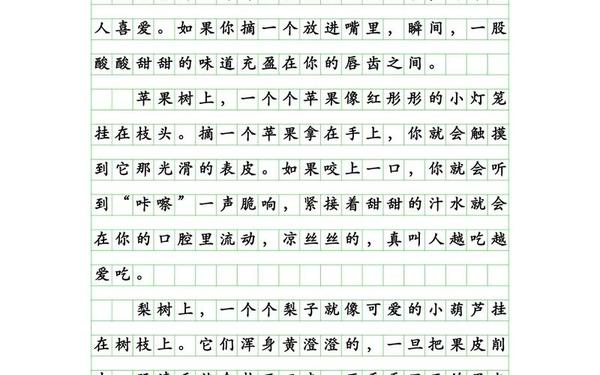 人喜爱。如果你摘一个放进嘴里，瞬间，一股
酸酸甜甜的味道充盈在你的唇齿之间。
苹果树上，一个个苹果像红彤彤的小灯笼
挂在枝头。摘一个苹果拿在手上，你就会触摸
到它那光滑的表皮。如果咬上一口，你就会听
到“咔嚓”一声脆响，紧接着甜甜的汁水就会
在你的口腔里流动，凉丝丝的，真叫人越吃越
爱吃。
梨树上，一个个梨子就像可爱的小葫芦挂
在树枝上。它们浑身黄澄澄的，一旦把果皮削